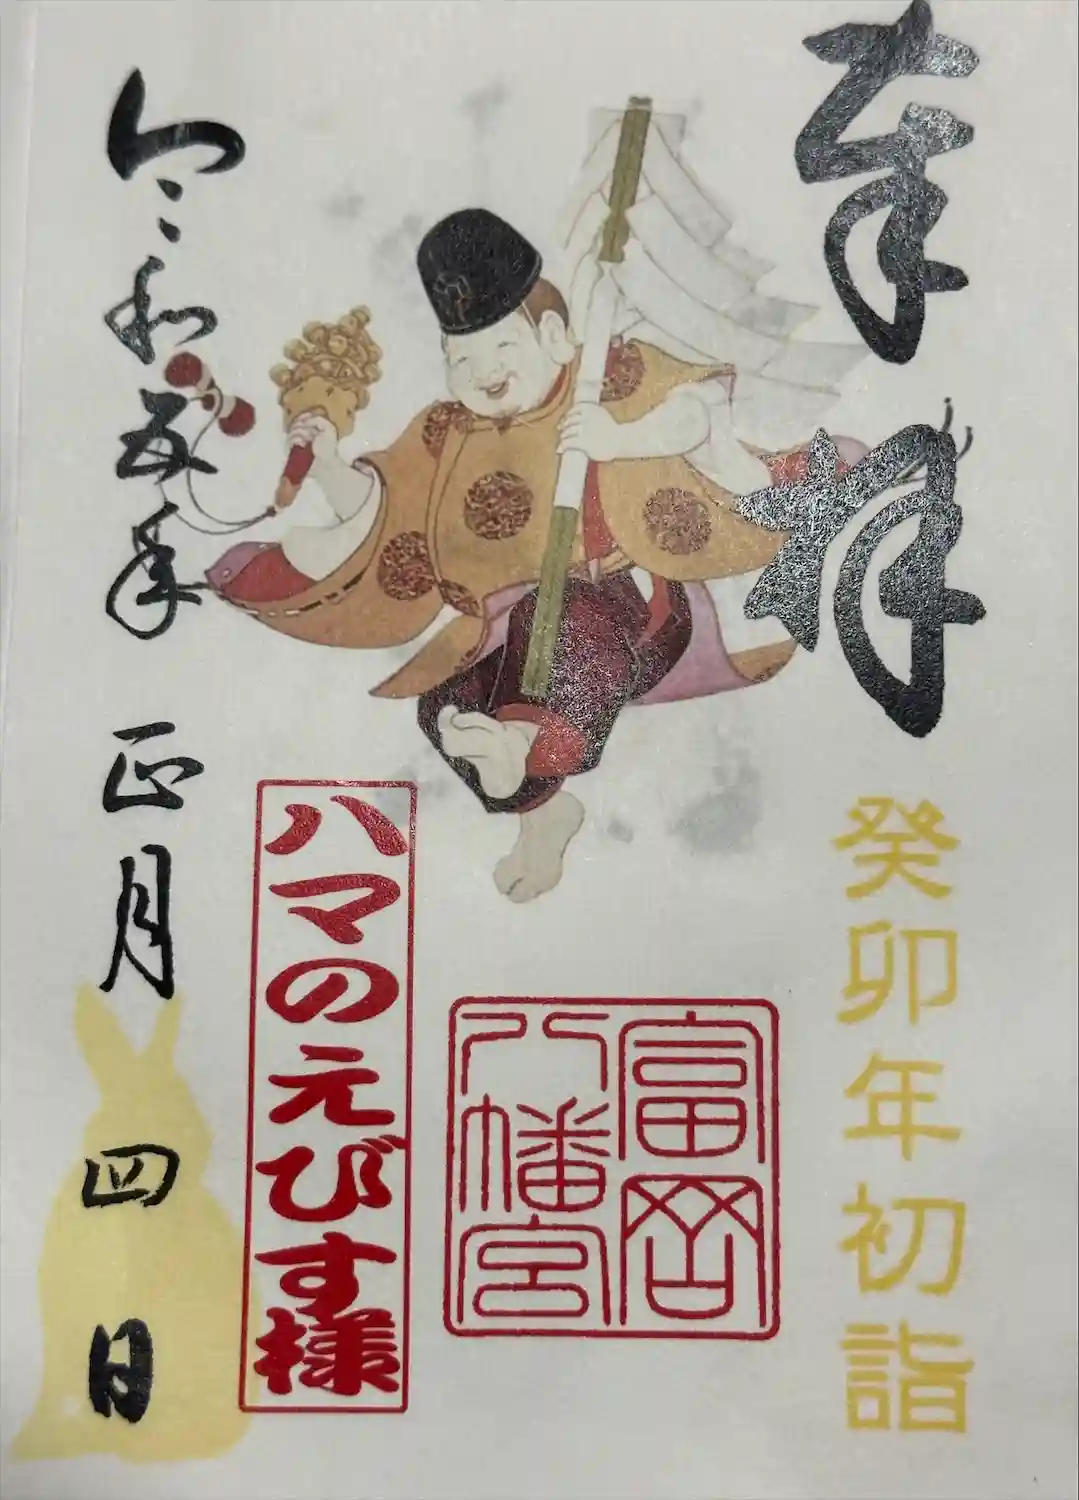 奉拝
癸卯年初詣
富岡八幡宮
ハマのえびす様
令和五年 正月 四日